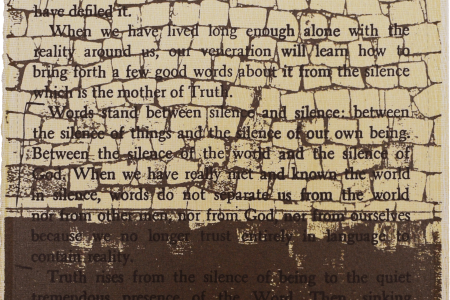 have defiled it.
When we have lived long enough alone with the
reality around us, our veneration will learn how to
bring forth a few good words about it from the silence
which is the mother of Truth.
Words stand between silence and silence: between
the silence of things and the silence of our own being.
Between the silence of the world and the silence of
God. When we have really met and known the world
in silence, words do not separate us from the world
nor from other men, nor from God, nor from ourselves
because we no longer trust entirely in language to
contain reality.
Truth rises from the silence of being to the quiet
tremendous presence of the Word. Then,